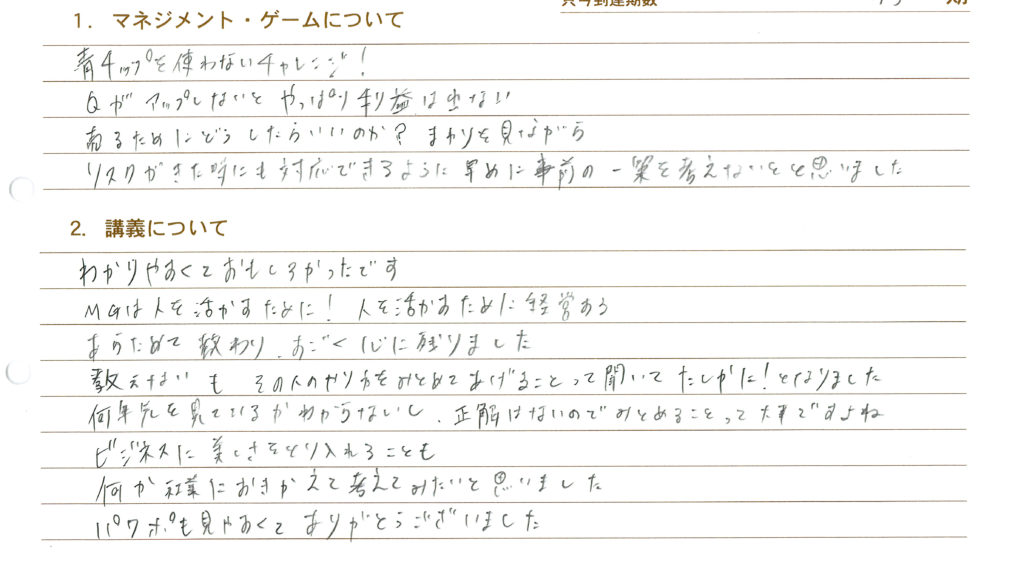 只今到達期数 期
1. マネジメント・ゲームについて
青チップを使わないチャレンジ！
Qがアップしないとやっぱり利益は出ない
するためにどうしたらいいのか？まわりを見ながら
リスクがきた時にも対応できるように早めに事前の一策を考えないとと思いました
2. 講義について
わかりやすくておもしろかったです
MGは人を活かすために！人を活かすために経営する
あらためて教わり、すごく心に残りました
教えない も その人のやり方をみとめてあげることって聞いてたしかに！となりました
何年先を見ているかわからないし、正解はないのでみとめることって大事ですよね
ビジネスに美しさをとり入れることも
何か社業におきかえて考えてみたいと思いました
パワポも見やすくてありがとうございました